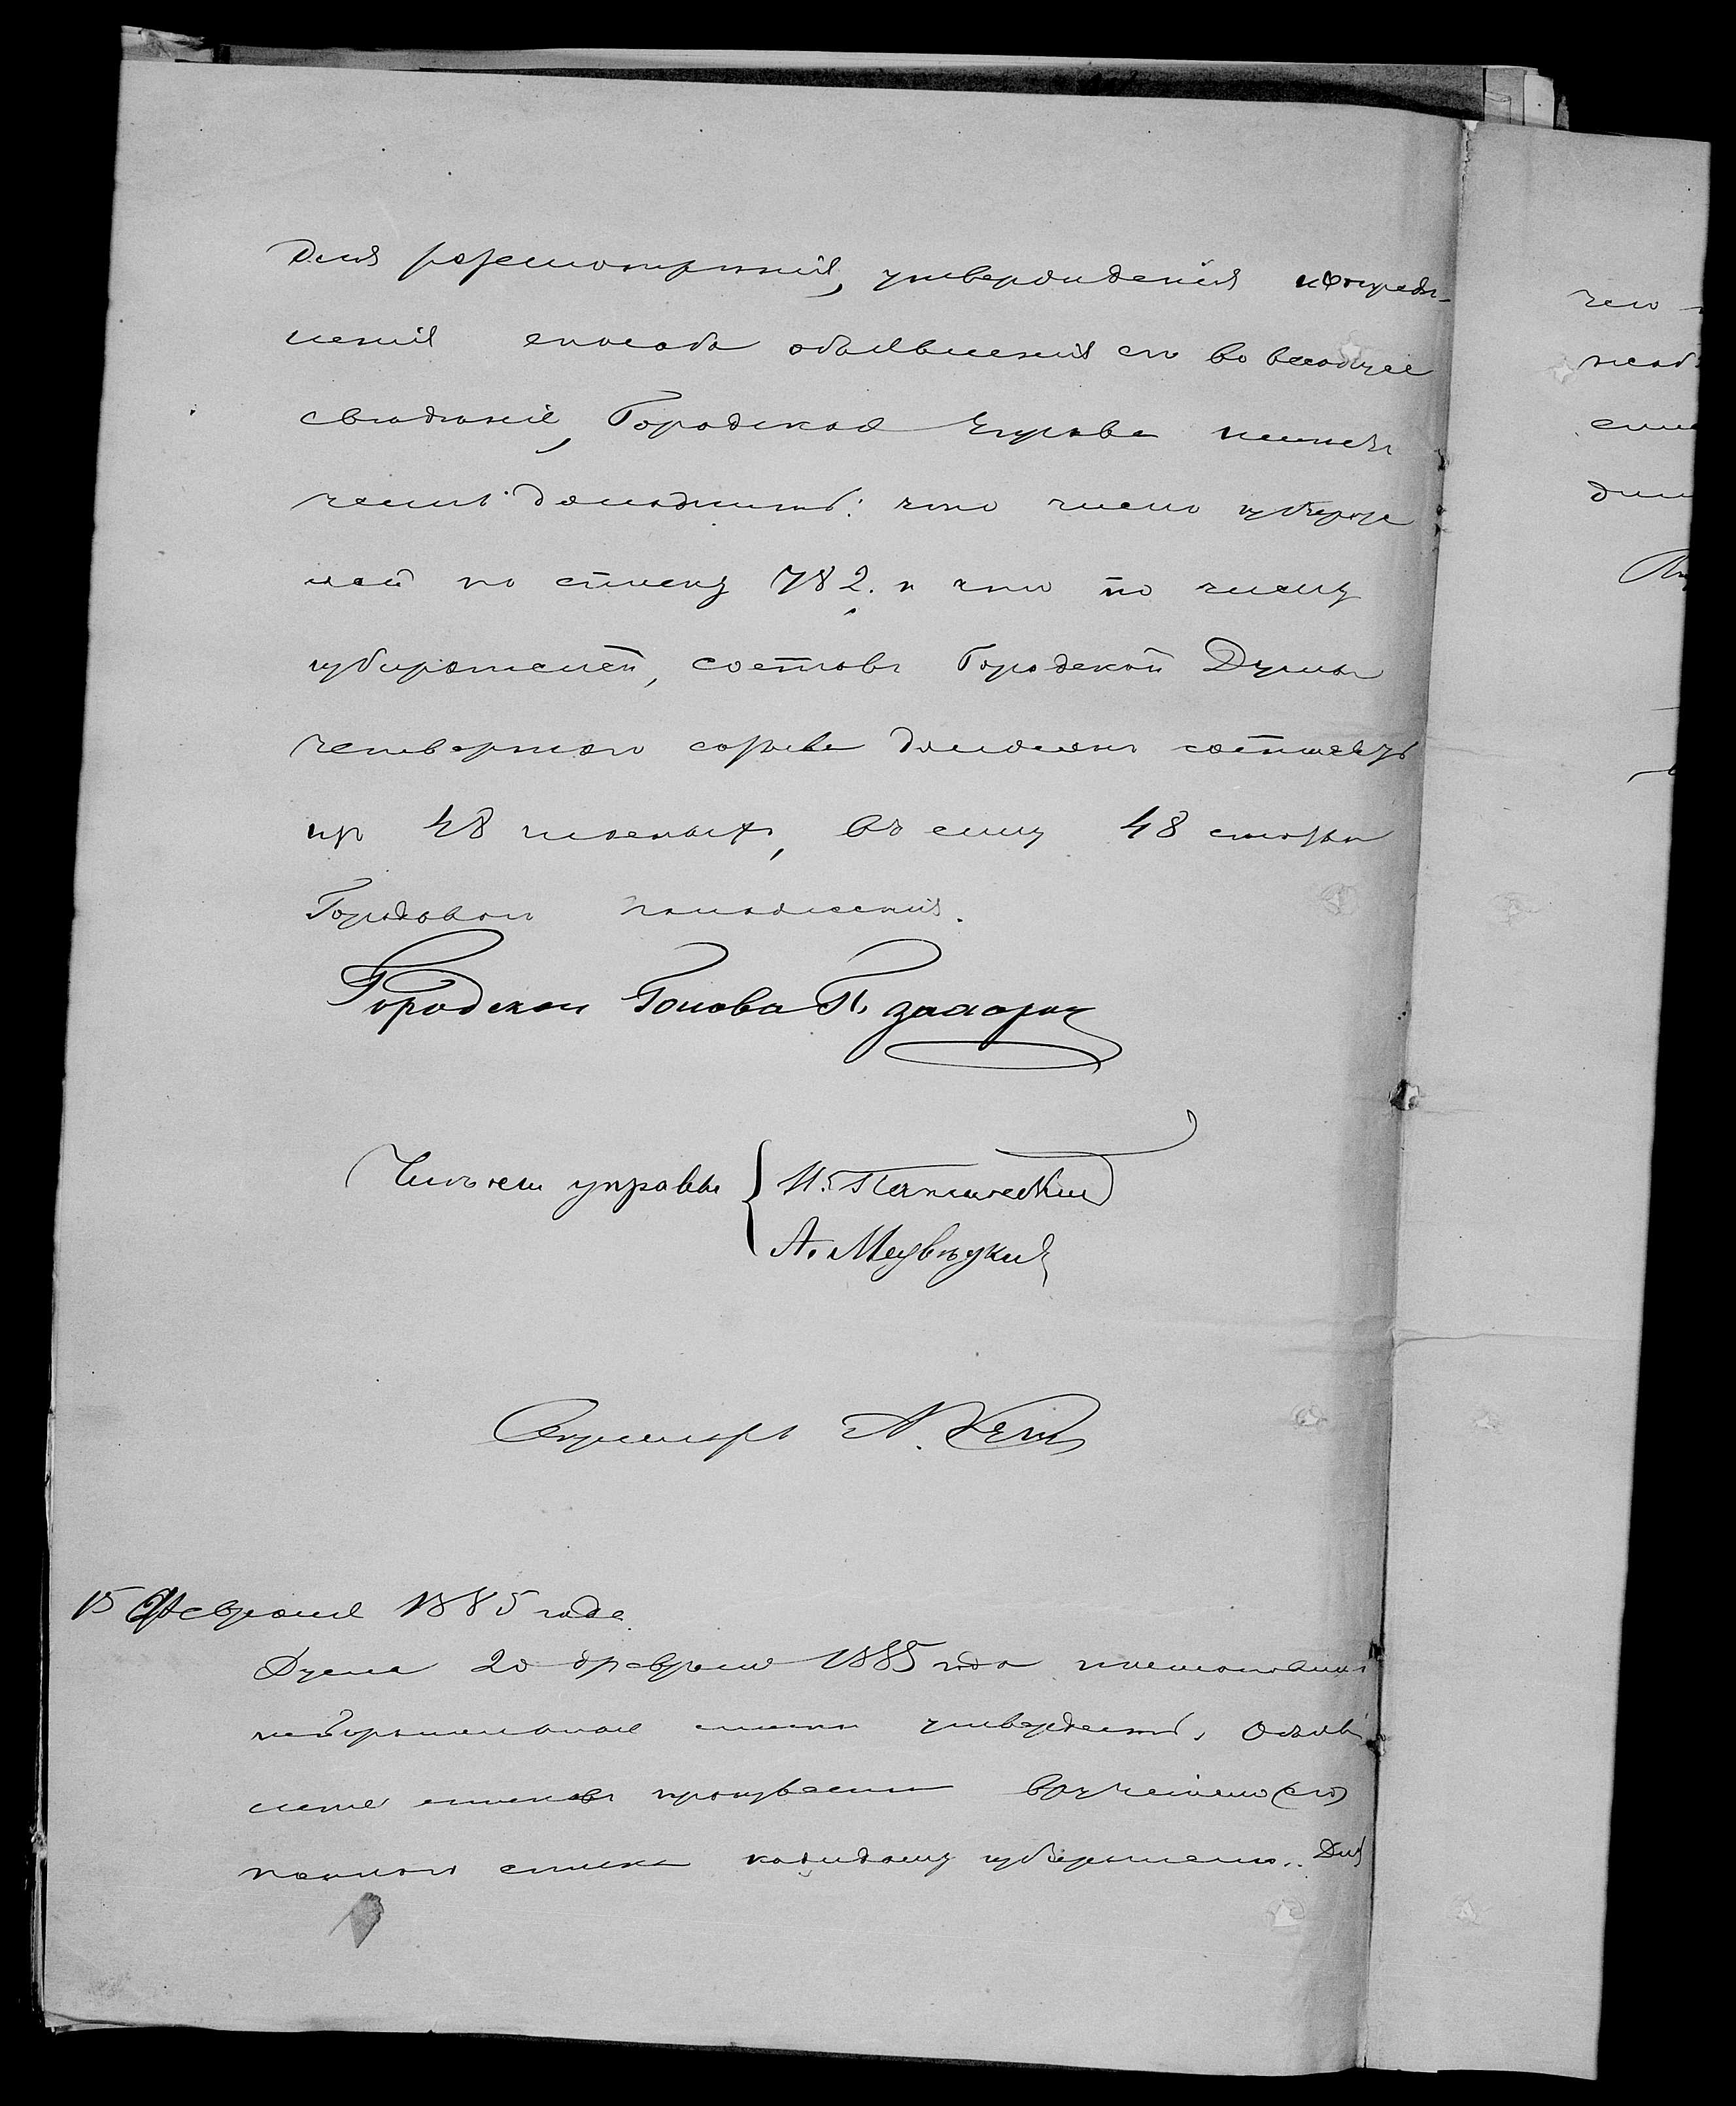 для разсмотрѣнія, утвержденія и опредѣ-
ленія способа объявленія его во всеобщее
свѣдѣніе, Городская Управа имѣетъ
честь доложить: что число избирате
лей по списку 782. и что по числу
избирателей, составъ Городской Думы
четвертаго созыва долженъ состоять
изъ 48 гласныхъ, въ силу 48 статьи
Городоваго положенія.
Городской Голова П.
Члены управы { И.
А.
Секретарь А.
15 Февраля 1885 года.
Дума 20 февраля 1885 года постановила:
избирательные списки утвердить. Объяв
леніе списковъ произвести врученіемъ (его)
полнаго списка каждому избирателю. Для
чего
необ